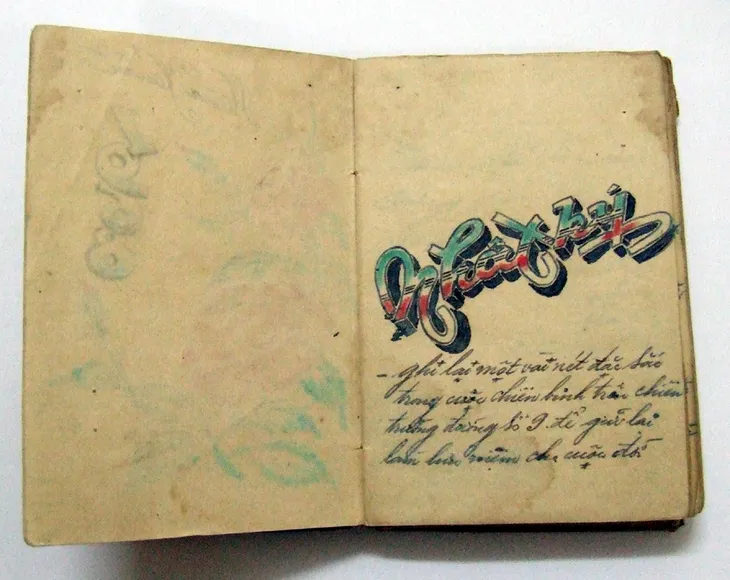 Nhật ký
- ghi lại một vài nét đặc sắc
trong cuộc chiến binh trên chiến
trường đường số 9 để giữ lại
làm lưu niệm cho cuộc đời